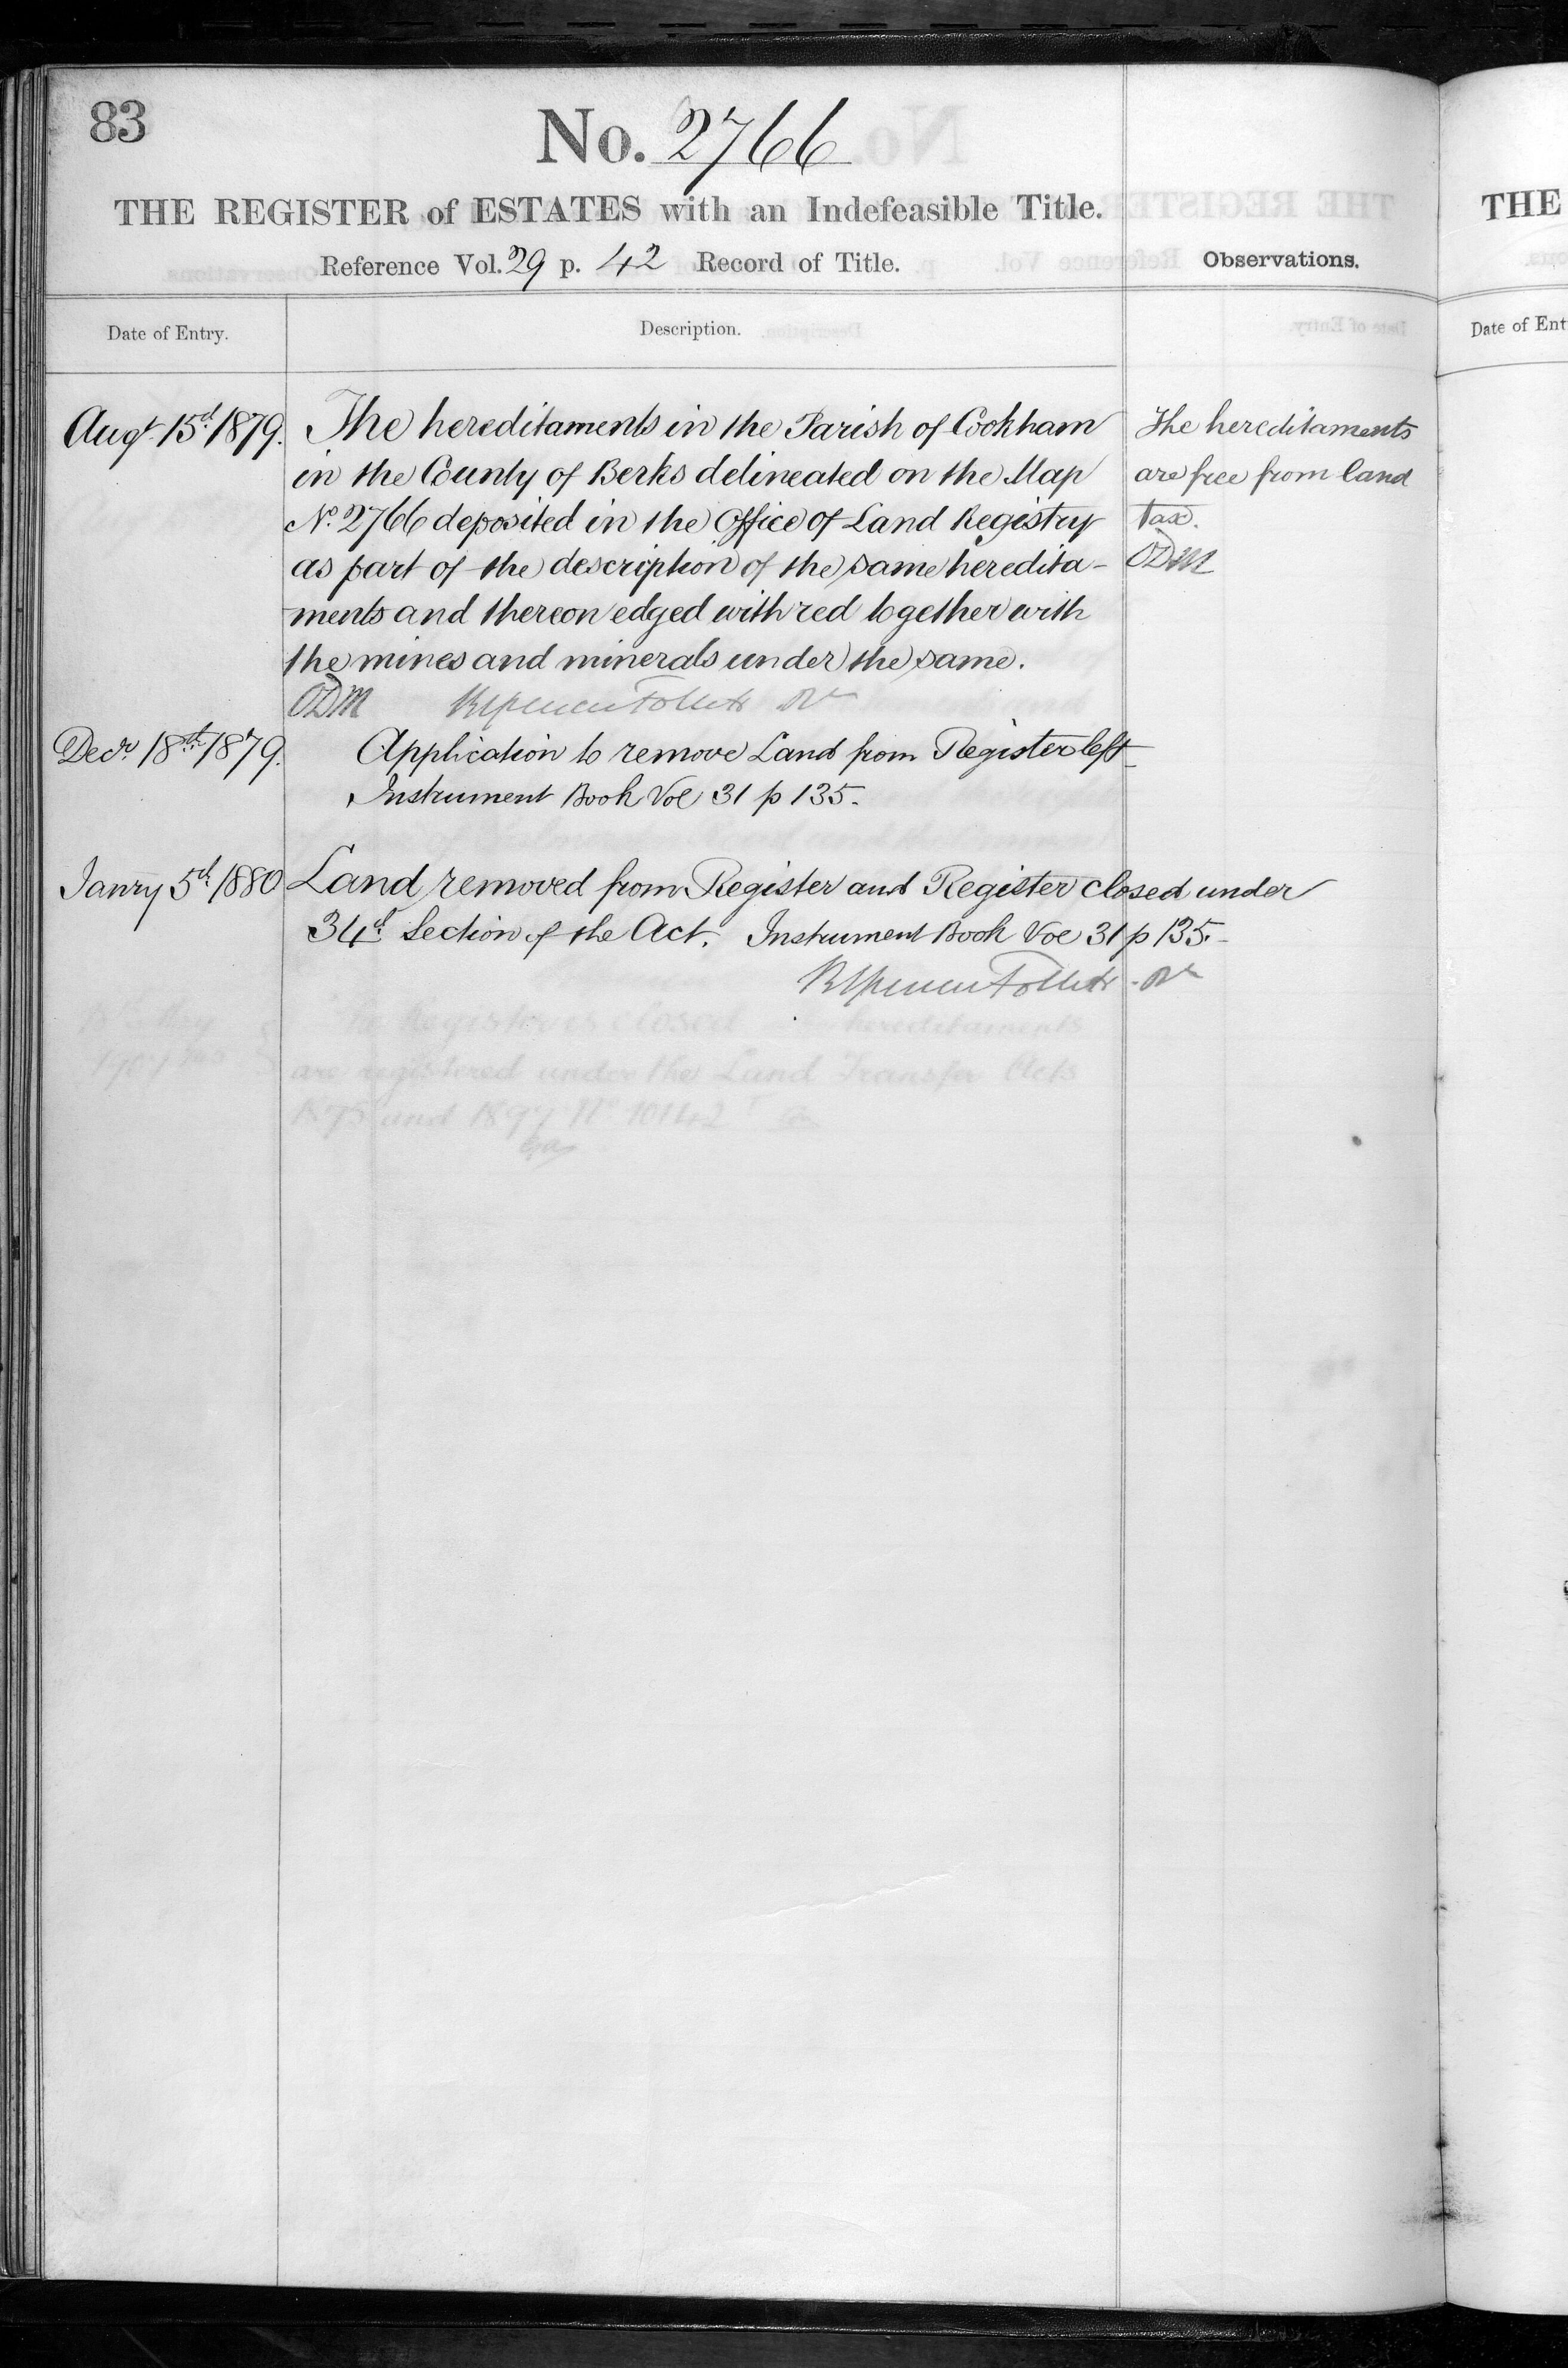 83
No. 2766
THE REGISTER of ESTATES with an Indefeasible Title.
Reference Vol. 29 p. 42 Record of Title.
Observations.
Date of Entry.
Description.
Augt 15th 1879.
The hereditaments in the Parish of Cookham
in the County of Berks delineated on the Map
No. 2766 deposited in the Office of Land Registry
as part of the description of the same heredita-
ments and thereon edged with red together with
the mines and minerals under the same.
ODM
The hereditaments
are free from land
tax.
ODM
Decr 18th 1879.
Application to remove Land from Register left
Instrument Book Vol 31 p 135.
Janry 5th 1880
Land removed from Register and Register closed under
34th Section of the Act. Instrument Book Vol 31 p 135.
The Register is closed hereditaments
are registered under the Land Transfer Acts
1875 and 1897 No
THE
Date of Ent